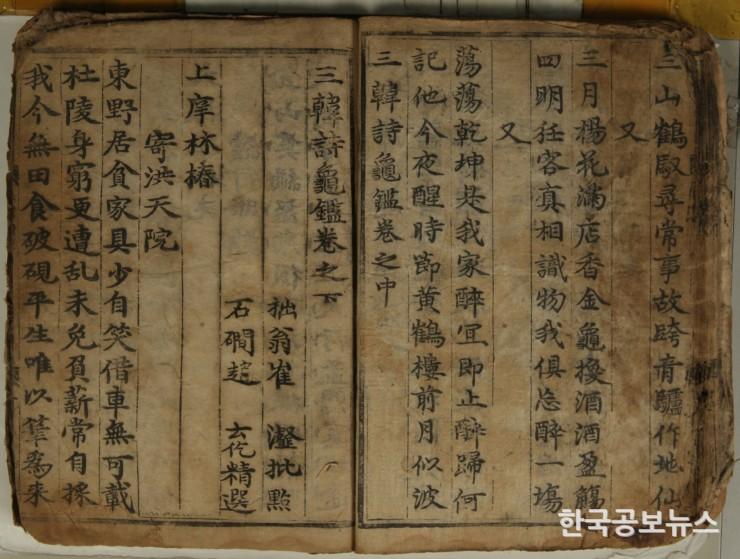 三山鶴馭尋常事故跨靑驢作地仙
又
三月楊花滿店香金龜換酒酒盈觴
四明狂客真相識物我俱忘醉一塲
又
蕩蕩乾坤是我家醉宜即止醉歸何
記他今夜醒時節黃鶴樓前月似波
三韓詩龜鑑卷之中
三韓詩龜鑑卷之下
拙翁崔 瀣批點
石磵趙 云仡精選
上庠林椿
寄洪天院
東野居貧家具少自笑借車無可載
杜陵身窮更遭乱未免負薪常自採
我今無田食破硯平生唯以筆為耒
한국공보뉴스